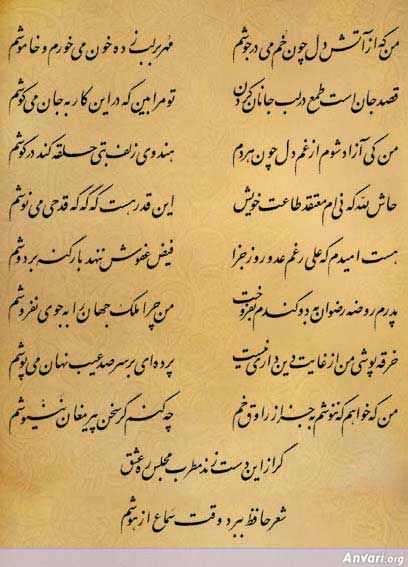 من که از آتش دل چون خم می در جوشم مهر بر لب زده خون می خورم و خاموشم
قصد جان است طمع در لب جانان کردن تو مرا بین که در این کار به جان می کوشم
من کی آزاد شوم از غم دل چون هر دم هندوی زلف بتی حلقه کند در گوشم
حاش لله که نی ام معتقد طاعت خویش این قدر هست که گه گه قدحی می نوشم
هست امیدم که علی رغم عدو روز جزا فیض عفوش ننهد بار گنه بر دوشم
پدرم روضه رضوان به دو گندم بفروخت من چرا ملک جهان را به جوی نفروشم
خرقه پوشی من از غایت دین داری نیست پرده ای بر سر صد عیب نهان می پوشم
من که خواهم که ننوشم به جز از راوق خم چه کنم گر سخن پیر مغان ننیوشم
گر از این دست زند مطرب مجلس ره عشق
شعر حافظ ببرد وقت سماع از هوشم
Anvari.org